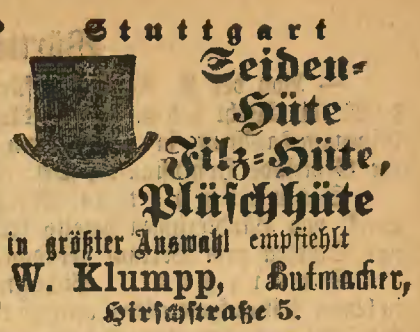 Stuttgart
Seiden-
Hüte
Filz-Hüte,
Plüschhüte
in größter Auswahl empfiehlt
W. Klumpp, Hutmacher,
Hirschstraße 5.